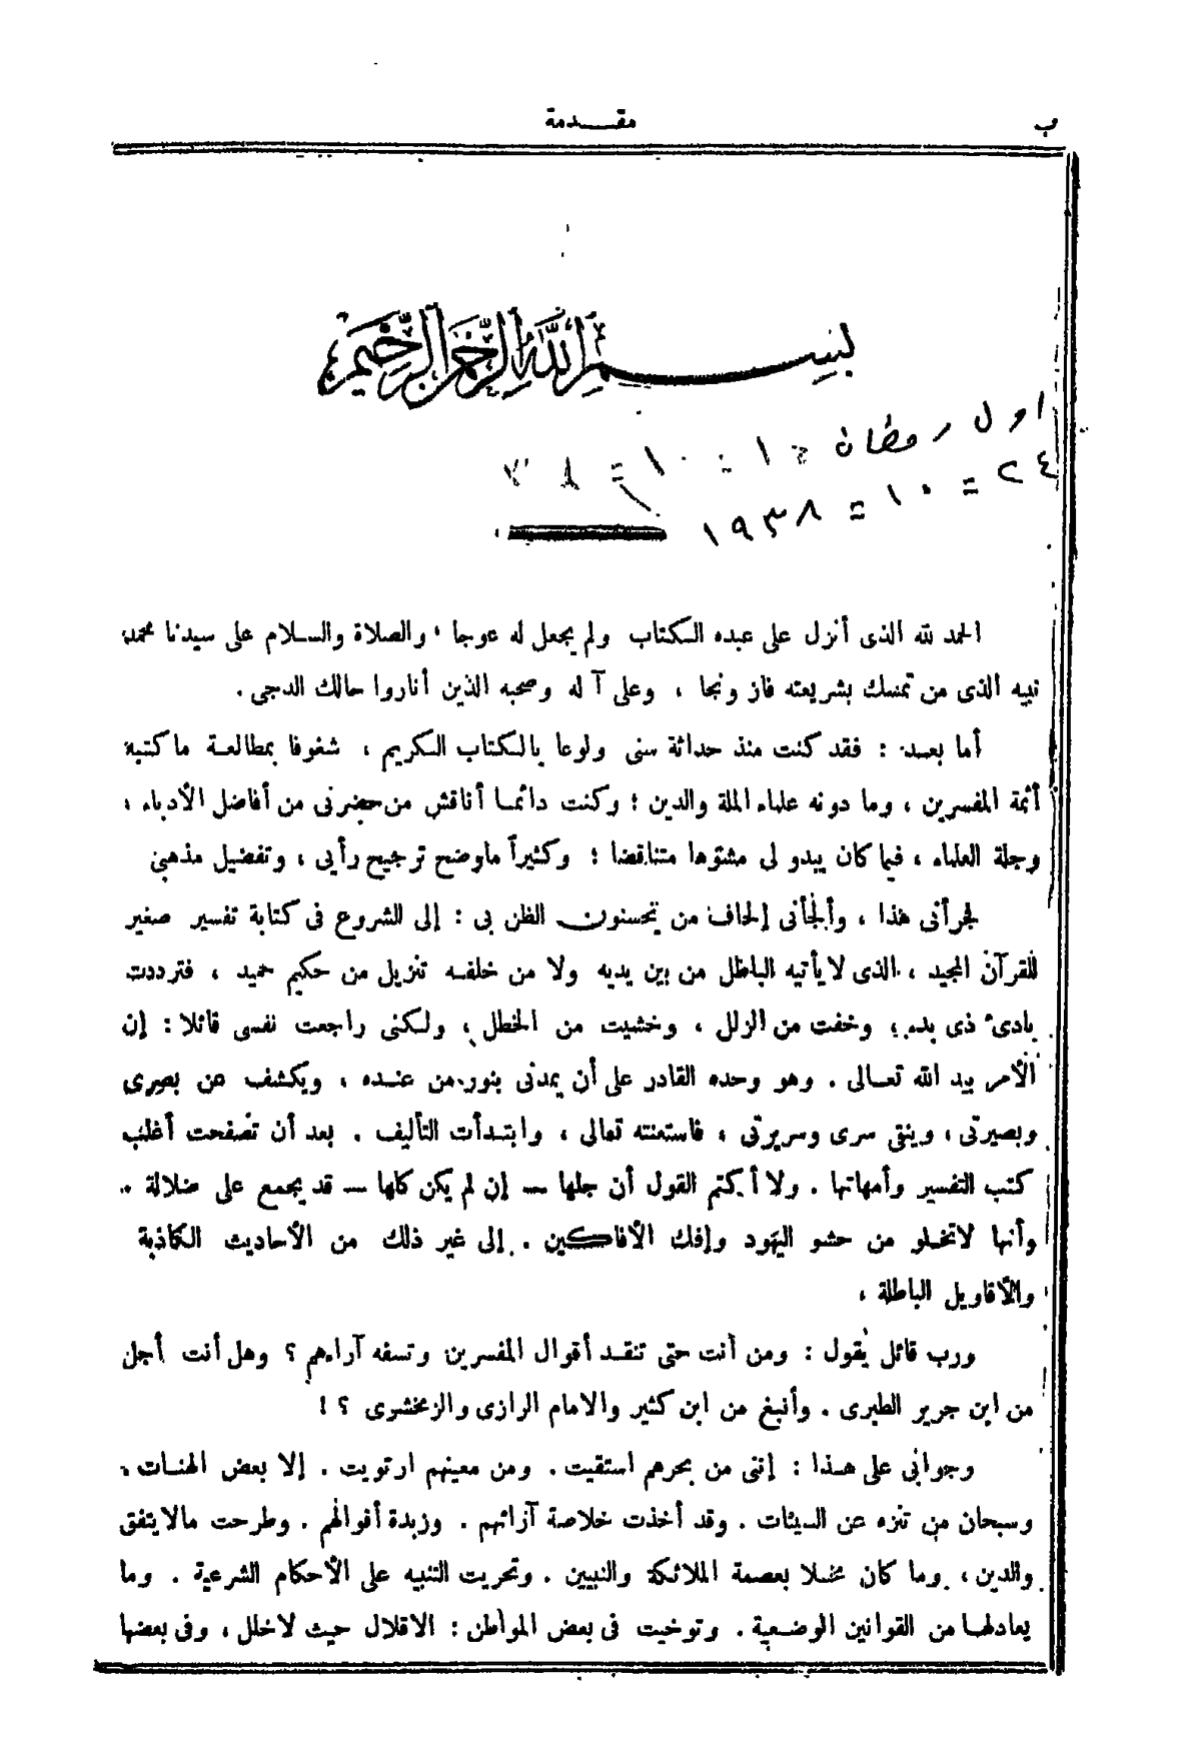 ب
مقدمة
بسم الله الرحمن الرحيم
اول رمضان
٢٤ = ١٠ = ١٩٣٨
الحمد لله الذى أنزل على عبده الكتاب ولم يجعل له عوجا ، والصلاة والسلام على سيدنا محمد
نبيه الذى من تمسك بشريعته فاز ونجا ، وعلى آله وصحبه الذين أناروا حالك الدجى .
أما بعد : فقد كنت منذ حداثة سنى ولوعا بالكتاب الكريم ، شغوفا بمطالعة ما كتبه
أئمة المفسرين ، وما دونه علماء الملة والدين ؛ وكنت دائما أناقش من حضرنى من أفاضل الأدباء ،
وجلة العلماء ، فيما كان يبدو لى مشتوها متناقضا ؛ وكثيراً ما وضح ترجيح رأيى ، وتفضيل مذهبى
فجرأنى هذا ، وألجأنى إلحاف من يحسنون الظن بى : إلى الشروع فى كتابة تفسير صغير
للقرآن المجيد ، الذى لا يأتيه الباطل من بين يديه ولا من خلفه تنزيل من حكيم حميد ، فترددت
بادئ ذى بدء ؛ وخفت من الزلل ، وخشيت من الخطل ؛ ولكنى راجعت نفسى قائلا : إن
الأمر بيد الله تعالى . وهو وحده القادر على أن يمدنى بنور من عنده ، ويكشف عن بصرى
وبصيرتى ، وينقى سرى وسريرتى ، فاستعنته تعالى ، وابتدأت التأليف . بعد أن تصفحت أغلب
كتب التفسير وأمهاتها . ولا أكتم القول أن جلها — إن لم يكن كلها — قد يجمع على ضلالة .
وأنها لا تخلو من حشو اليهود وإفك الأفاكين . إلى غير ذلك من الأحاديث الكاذبة
والأقاويل الباطلة ،
ورب قائل يقول : ومن أنت حتى تنقد أقوال المفسرين وتسفه آراءهم ؟ وهل أنت أجل
من ابن جرير الطبرى . وأنبغ من ابن كثير والامام الرازى والزمخشرى ؟ !
وجوابى على هذا : إننى من بحرهم استقيت . ومن معينهم ارتويت . إلا بعض الهنات .
وسبحان من تنزه عن السيئات . وقد أخذت خلاصة آرائهم . وزبدة أقوالهم . وطرحت مالا يتفق
والدين ، وما كان مخلا بعصمة الملائكة والنبيين . وتحريت التنبيه على الأحكام الشرعية . وما
يعادلها من القوانين الوضعية . وتوخيت فى بعض المواطن : الاقلال حيث لا خلل ، وفى بعضها